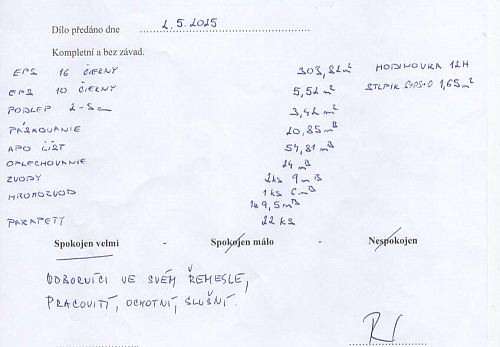 Dílo předáno dne 2.5.2025
Kompletní a bez závad.
EPS 16 ČIERNY 303,82 m² HODINOVKA 12H
EPS 10 ČIERNY 5,52 m² STLPIK 1,65 m²
PODLEP 2-5cm 3,42 m²
PÁSKOVANIE 20,85 mB
APU LIŠT 54,81 mB
OPLECHOVANIE 24 mB
ZVODY 2ks 9 mB
HROMOZVOD 1ks 6 mB
9,5 mB
PARAPETY 22 ks
Spokojen velmi - Spokojen málo - Nespokojen
ODBORNÍCI VE SVÉM ŘEMESLE,
PRACOVITÍ, OCHOTNÍ, SLUŠNÍ.